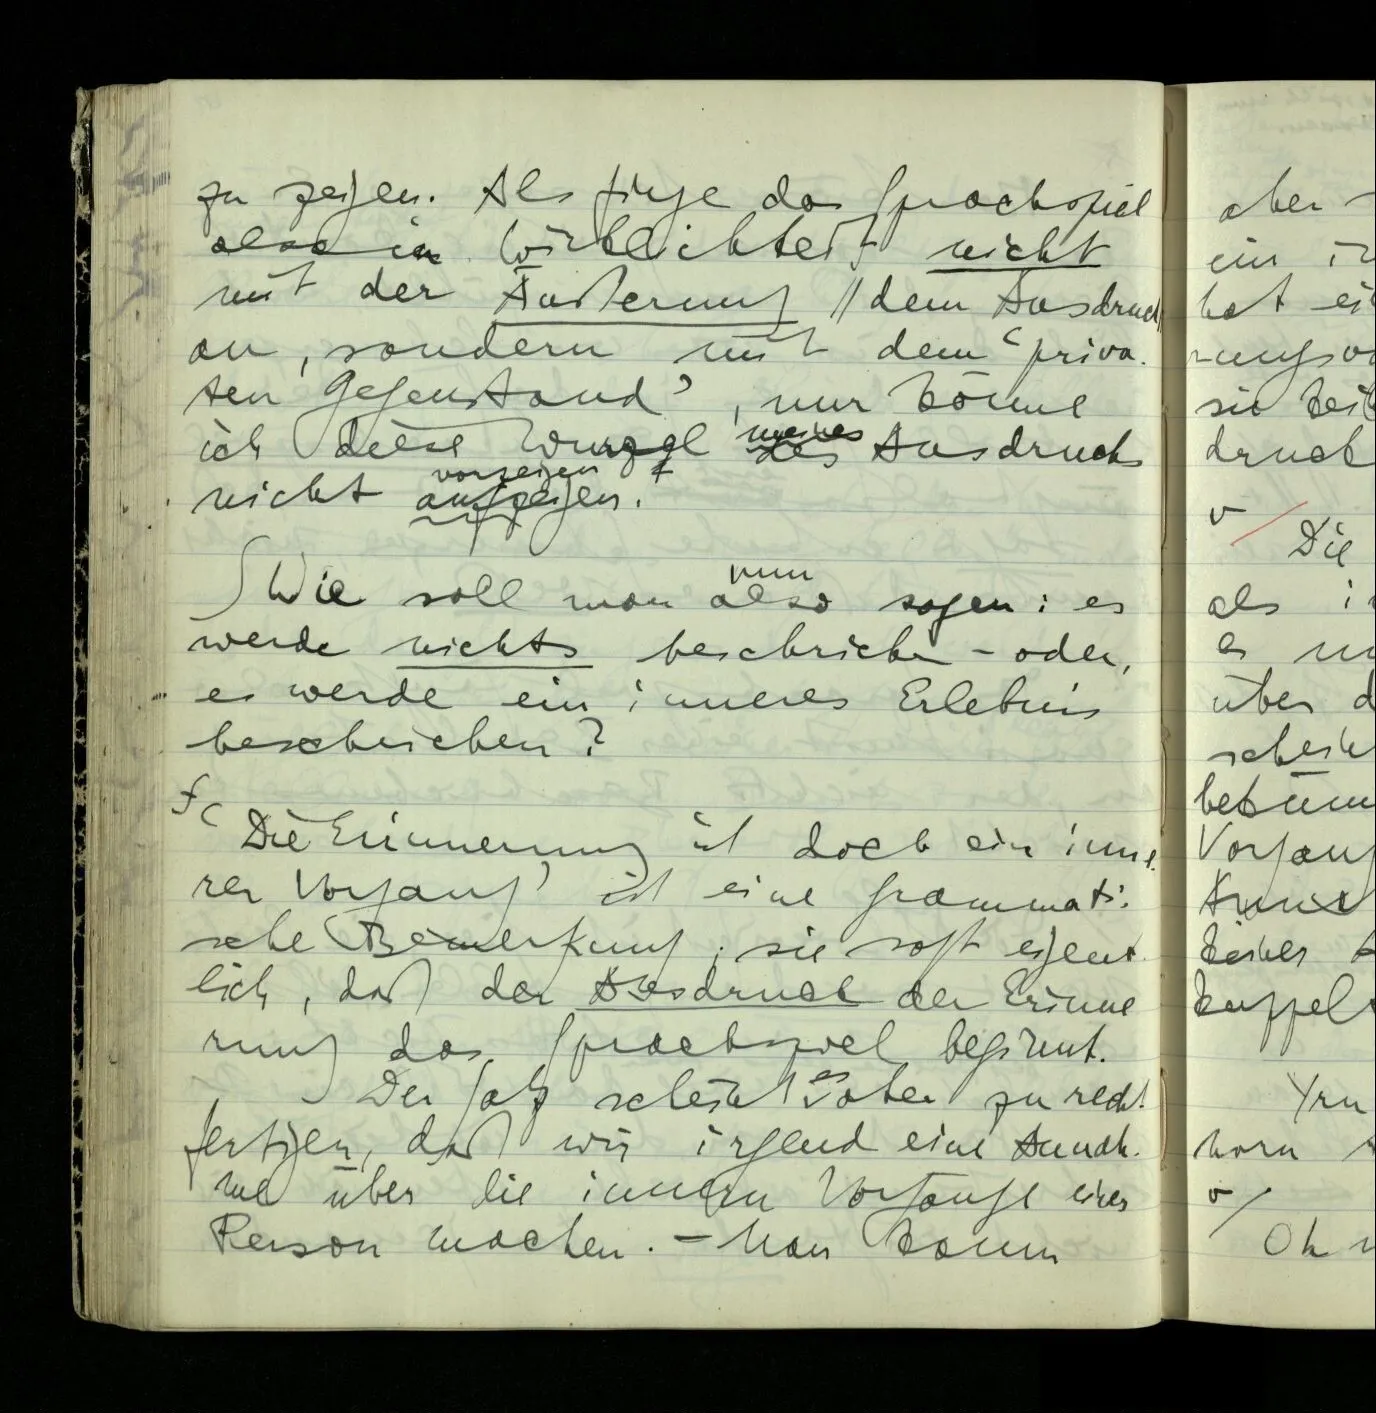 zu zeigen. Als finge das Sprachspiel
also in Wirklichkeit nicht
mit der Äußerung // dem Ausdruck
an, sondern mit dem ‘priva-
ten Gegenstand’, nur könne
ich diese Wurzel des meines Ausdrucks
nicht aufzeigen. vorzeigen
Wie soll man also nun sagen: es
werde nichts beschrieben – oder,
es werde ein inneres Erlebnis
beschrieben?
‘Die Erinnerung ist doch ein inne-
rer Vorgang’ ist eine grammati-
sche Bemerkung; sie sagt eigent-
lich, daß der Ausdruck der Erinne
rung das Sprachspiel beginnt.
Der Satz scheint es aber zu recht-
fertigen, daß wir irgend eine Annah-
me über die innern Vorgänge einer
Person machen. – Man kann
aber
ein
hat
sie
druck
Die
als
es
über
Vorgang
keines
Oh